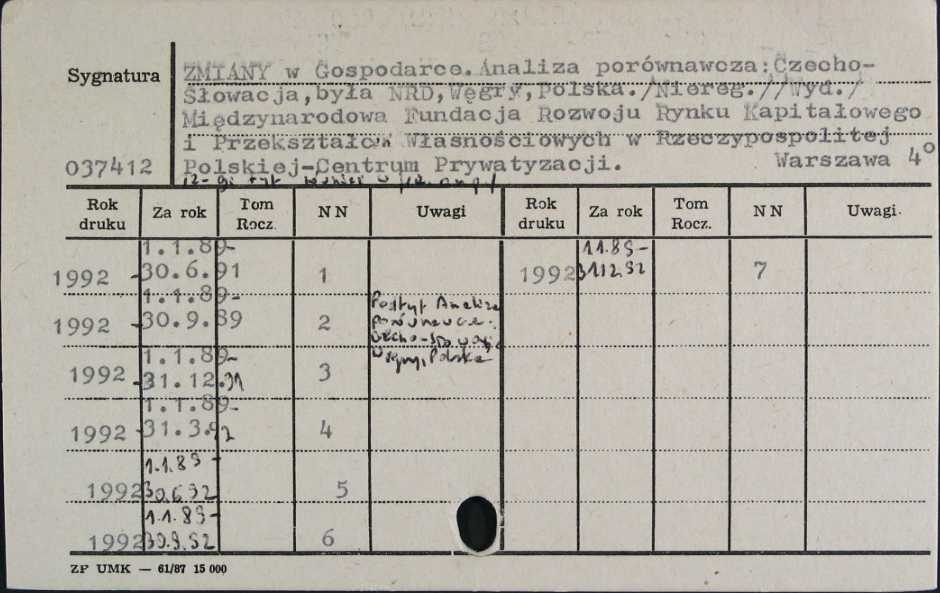 Sygnatura
ZMIANY w Gospodarce. Analiza porównawcza: Czecho-
Słowacja, była NRD, Węgry, Polska. /Niereg.//Wyd./
Międzynarodowa Fundacja Rozwoju Rynku Kapitałowego
i Przekształceń Własnościowych w Rzeczypospolitej
037412 Polskiej-Centrum Prywatyzacji. Warszawa 4°
Rok druku Za rok Tom Rocz. NN Uwagi Rok druku Za rok Tom Rocz. NN Uwagi.
1992 1.1.89-30.6.91 1 1992 1.1.89-31.12.92 7
1992 1.1.89-30.9.89 2 Podtyt Analiza porównawcza: Czecho-Słowacja Węgry, Polska
1992 1.1.89-31.12.91 3
1992 1.1.89-31.3.92 4
1992 1.1.89-30.6.92 5
1992 1.1.89-30.9.92 6
ZP UMK — 61/87 15 000